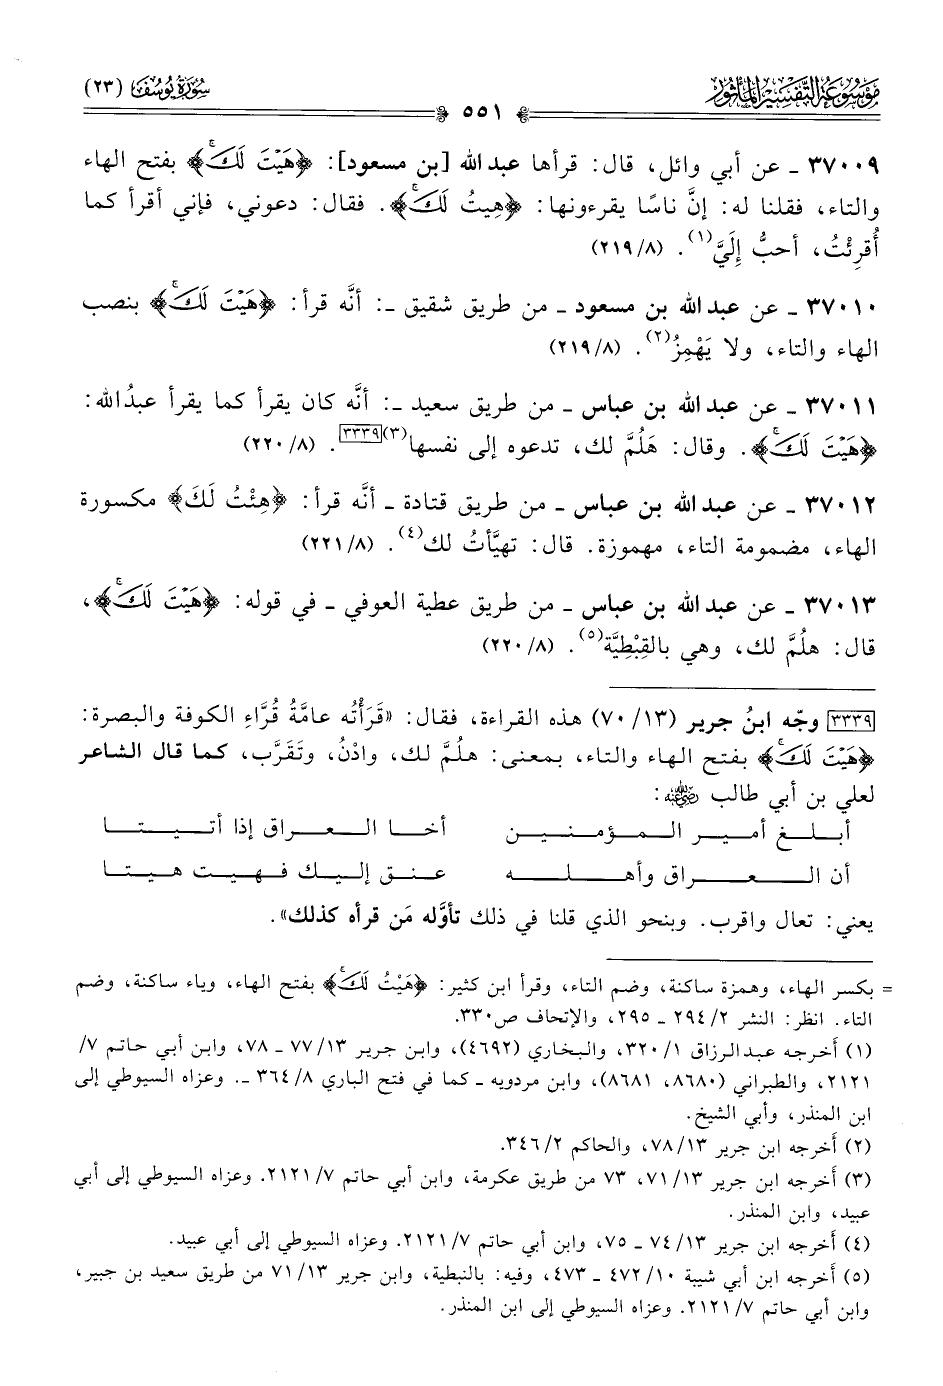 موسوعة التفسير المأثور
سورة يوسف (٢٣)
٥٥١
٣٧٠٠٩ ـ عن أبي وائل، قال: قرأها عبد الله [بن مسعود]: ﴿هَيْتَ لَكَ ۚ﴾ بفتح الهاء
والتاء، فقلنا له: إنَّ ناسًا يقرءونها: ﴿هِيتُ لَكَ ۚ﴾. فقال: دعوني، فإني أقرأ كما
أُقرِئْتُ، أحبُّ إِلَيَّ(١). (٢١٩/٨)
٣٧٠١٠ ـ عن عبد الله بن مسعود ـ من طريق شقيق ـ: أنَّه قرأ: ﴿هَيْتَ لَكَ ۚ﴾ بنصب
الهاء والتاء، ولا يَهْمِزُ(٢). (٢١٩/٨)
٣٧٠١١ ـ عن عبد الله بن عباس ـ من طريق سعيد ـ: أنَّه كان يقرأ كما يقرأ عبدُ الله:
﴿هَيْتَ لَكَ ۚ﴾. وقال: هَلُمَّ لك، تدعوه إلى نفسها(٣)[٣٣٣٩]. (٢٢٠/٨)
٣٧٠١٢ ـ عن عبد الله بن عباس ـ من طريق قتادة ـ أنَّه قرأ: ﴿هِئْتُ لَكَ﴾ مكسورة
الهاء، مضمومة التاء، مهموزة. قال: تهيَّأتُ لك(٤). (٢٢١/٨)
٣٧٠١٣ ـ عن عبد الله بن عباس ـ من طريق عطية العوفي ـ في قوله: ﴿هَيْتَ لَكَ ۚ﴾،
قال: هلُمَّ لك، وهي بالقِبْطِيَّة(٥). (٢٢٠/٨)
[٣٣٣٩] وجّه ابنُ جرير (٧٠/١٣) هذه القراءة، فقال: «قَرَأَتْه عامَّةُ قُرَّاءِ الكوفة والبصرة:
﴿هَيْتَ لَكَ ۚ﴾ بفتح الهاء والتاء، بمعنى: هلُمَّ لك، وادْنُ، وتَقَرَّب، كما قال الشاعر
لعلي بن أبي طالب رضي الله عنه:
أبلغ أمير المؤمنين أخا العراق إذا أتيتا
أن العراق وأهله عنق إليك فهيت هيتا
يعني: تعال واقرب. وبنحو الذي قلنا في ذلك تأوَّله مَن قرأه كذلك».
= بكسر الهاء، وهمزة ساكنة، وضم التاء، وقرأ ابن كثير: ﴿هَيْتُ لَكَ ۚ﴾ بفتح الهاء، وياء ساكنة، وضم
التاء. انظر: النشر ٢٩٤/٢ ـ ٢٩٥، والإتحاف ص٣٣٠.
(١) أخرجه عبد الرزاق ٣٢٠/١، والبخاري (٤٦٩٢)، وابن جرير ٧٧/١٣ ـ ٧٨، وابن أبي حاتم ٧/
٢١٢١، والطبراني (٨٦٨٠، ٨٦٨١)، وابن مردويه ـ كما في فتح الباري ٣٦٤/٨ ـ. وعزاه السيوطي إلى
ابن المنذر، وأبي الشيخ.
(٢) أخرجه ابن جرير ٧٨/١٣، والحاكم ٣٤٦/٢.
(٣) أخرجه ابن جرير ٧١/١٣، ٧٣ من طريق عكرمة، وابن أبي حاتم ٢١٢١/٧. وعزاه السيوطي إلى أبي
عبيد، وابن المنذر.
(٤) أخرجه ابن جرير ٧٤/١٣ ـ ٧٥، وابن أبي حاتم ٢١٢١/٧. وعزاه السيوطي إلى أبي عبيد.
(٥) أخرجه ابن أبي شيبة ٤٧٢/١٠ ـ ٤٧٣، وفيه: بالنبطية، وابن جرير ٧١/١٣ من طريق سعيد بن جبير،
وابن أبي حاتم ٢١٢١/٧. وعزاه السيوطي إلى ابن المنذر.